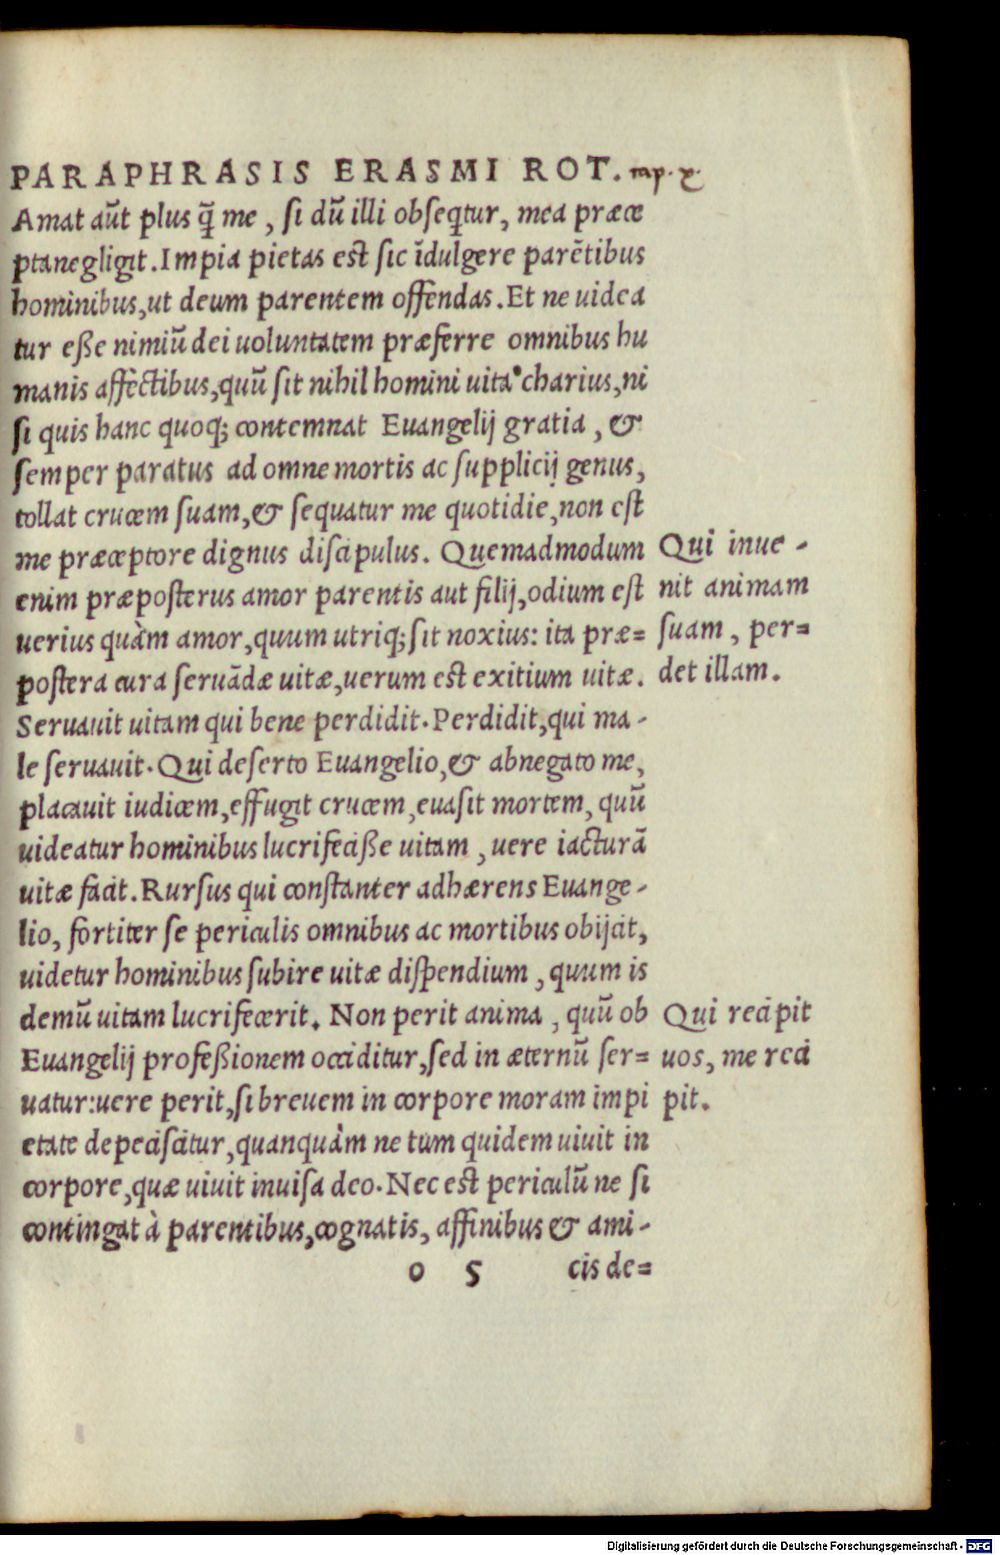 PARAPHRASIS ERASMI ROT.
Amat aūt plus q̄ me, si dū illi obseqtur, mea præce
pta negligit. Impia pietas est sic īdulgere parētibus
hominibus, ut deum parentem offendas. Et ne uidea
tur esse nimiū dei uoluntatem præferre omnibus hu
manis affectibus, quū sit nihil homini uita charius, ni
si quis hanc quoq; contemnat Euangelij gratia, &
semper paratus ad omne mortis ac supplicij genus,
tollat crucem suam, & sequatur me quotidie, non est
me præceptore dignus discipulus. Quemadmodum
enim præposterus amor parentis aut filij, odium est
uerius quàm amor, quum utriq; sit noxius: ita præ=
postera cura seruādæ uitæ, uerum est exitium uitæ.
Seruauit uitam qui bene perdidit. Perdidit, qui ma-
le seruauit. Qui deserto Euangelio, & abnegato me,
placauit iudicem, effugit crucem, euasit mortem, quū
uideatur hominibus lucrifecisse uitam, uere iacturā
uitæ facit. Rursus qui constanter adhærens Euange-
lio, fortiter se periculis omnibus ac mortibus obijcit,
uidetur hominibus subire uitæ dispendium, quum is
demū uitam lucrifecerit. Non perit anima, quū ob
Euangelij professionem occiditur, sed in æternū ser=
uatur: uere perit, si breuem in corpore moram impi
etate depeciscitur, quanquàm ne tum quidem uiuit in
corpore, quæ uiuit inuisa deo. Nec est periculū ne si
contingat à parentibus, cognatis, affinibus & ami-
o 5 cis de=
Qui inue-
nit animam
suam, per=
det illam.
Qui recipit
uos, me reci
pit.
Digitalisierung gefördert durch die Deutsche Forschungsgemeinschaft - DFG